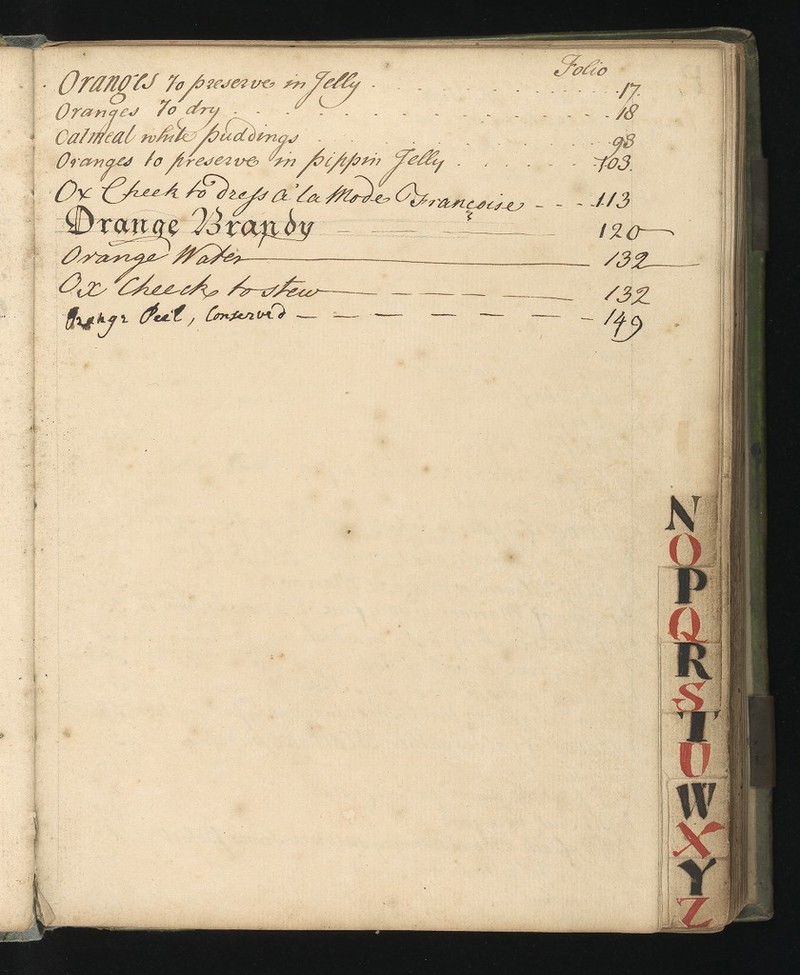 Folio
Oranges To preserve in Jelly . . . . . . . . . . 17.
Oranges To dry . . . . . . . . . . . 18
Oatmeal white puddings . . . . . . . . . 93
Oranges to preserve in pippin Jelly . . . . . . 103.
Ox Cheek to dress a la Mode Françoise - - - 113
Orange Brandy — — — 120
Orange Water — 132
Ox Cheeck to stew — — — 132
Orange Peel, Conserv'd — — — — — — — 149
N
O
P
Q
R
S
T
U
W
X
Y
Z